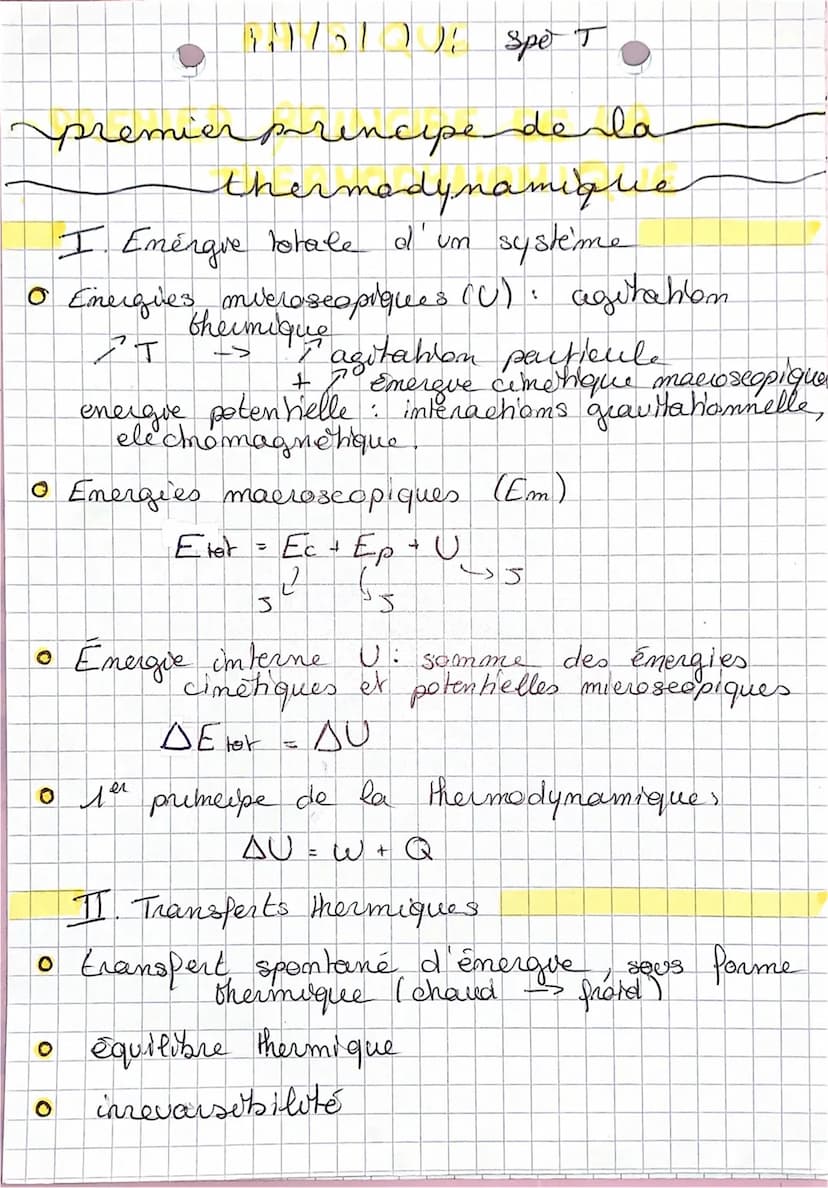 PHYSIQUE spé T
premier principe de la
thermodynamique
I. Énergie totale d'un système
Énergies microscopiques (U) : agitation
thermique
↗ T -> ↗ agitation particule
+ ↗ énergie cinétique macroscopique
energie potentielle : interactions gravitationnelle,
electromagnétique.
Energies macroscopiques (Em)
Etot = Ec + Ep + U
J J J
Énergie interne U : somme des énergies
cinétiques et potentielles microscopiques
ΔEtot = ΔU
1er principe de la thermodynamique,
ΔU = W + Q
II. Transferts thermiques
transfert spontané d'énergie, sous forme
thermique (chaud -> froid)
équilibre thermique
irreversibilité